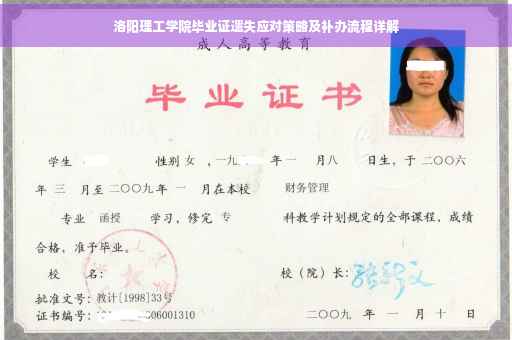 洛阳理工学院毕业证遗失应对策略及补办流程详解
成人高等教育
毕业证书
学生 性别 女 ，一九 年 一 月 八 日生，于 二〇〇六
年 三 月至 二〇〇九 年 一 月在本校 财务管理
专业 函授 学习，修完 专 科教学计划规定的全部课程，成绩
合格，准予毕业。
校 名： 校（院）长：
批准文号：教计[1998]33号
证书编号： 006001310 二〇〇九 年 一 月 十 日